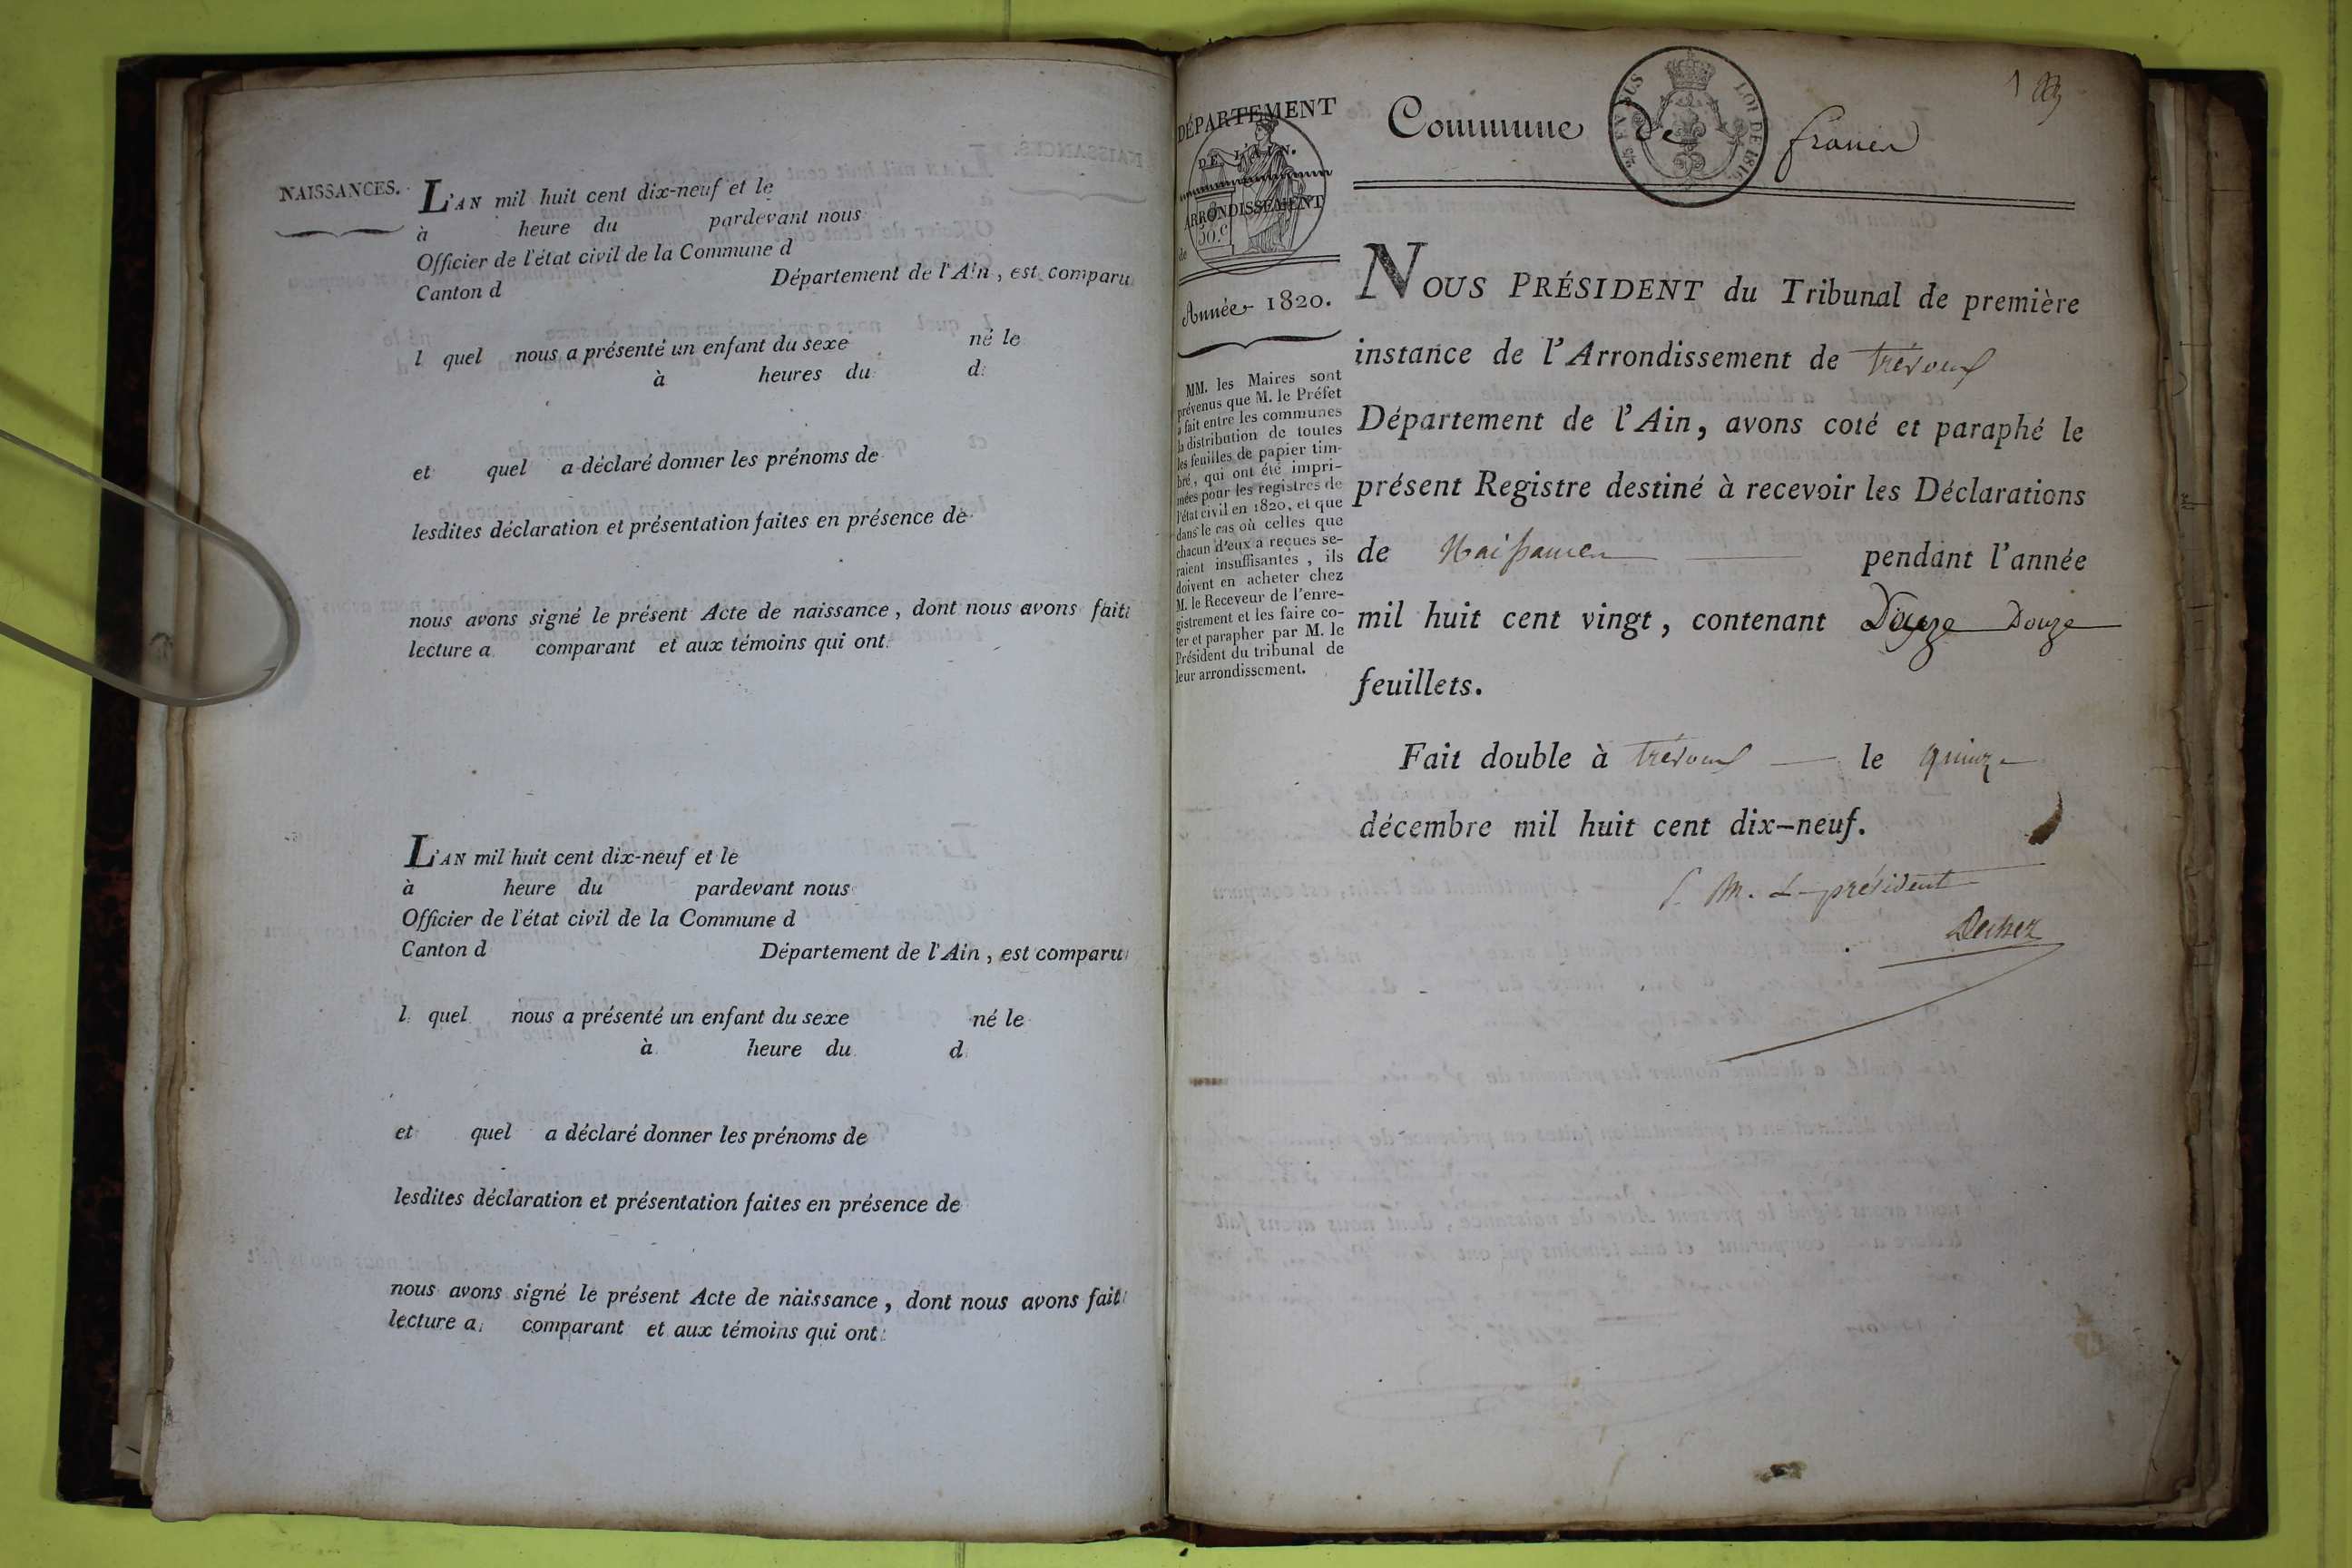 NAISSANCES.
L'AN mil huit cent dix-neuf et le
à heure du pardevant nous
Officier de l'état civil de la Commune d
Canton d Département de l'Ain, est comparu
l quel nous a présenté un enfant du sexe né le
à heures du d
et quel a déclaré donner les prénoms de
lesdites déclaration et présentation faites en présence de
nous avons signé le présent Acte de naissance, dont nous avons fait
lecture a comparant et aux témoins qui ont
L'AN mil huit cent dix-neuf et le
à heure du pardevant nous
Officier de l'état civil de la Commune d
Canton d Département de l'Ain, est comparu
l quel nous a présenté un enfant du sexe né le
à heure du d
et quel a déclaré donner les prénoms de
lesdites déclaration et présentation faites en présence de
nous avons signé le présent Acte de naissance, dont nous avons fait
lecture a comparant et aux témoins qui ont
DÉPARTEMENT
DE L'AIN.
ARRONDISSEMENT
de
50.c
Année 1820.
MM. les Maires sont
prévenus que M. le Préfet
a fait entre les communes
la distribution de toutes
les feuilles de papier tim-
bré, qui ont été impri-
mées pour les registres de
l'état civil en 1820, et que
dans le cas où celles que
chacun d'eux a reçues se-
raient insuffisantes, ils
doivent en acheter chez
M. le Receveur de l'enre-
gistrement et les faire co-
ter et parapher par M. le
Président du tribunal de
leur arrondissement.
Commune de francs
LOI DE 1816
NOUS PRÉSIDENT du Tribunal de première
instance de l'Arrondissement de trévoux
Département de l'Ain, avons coté et paraphé le
présent Registre destiné à recevoir les Déclarations
de Naissances pendant l'année
mil huit cent vingt, contenant Douze
feuillets.
Fait double à trévoux le quinze
décembre mil huit cent dix-neuf.
P. M. Le président